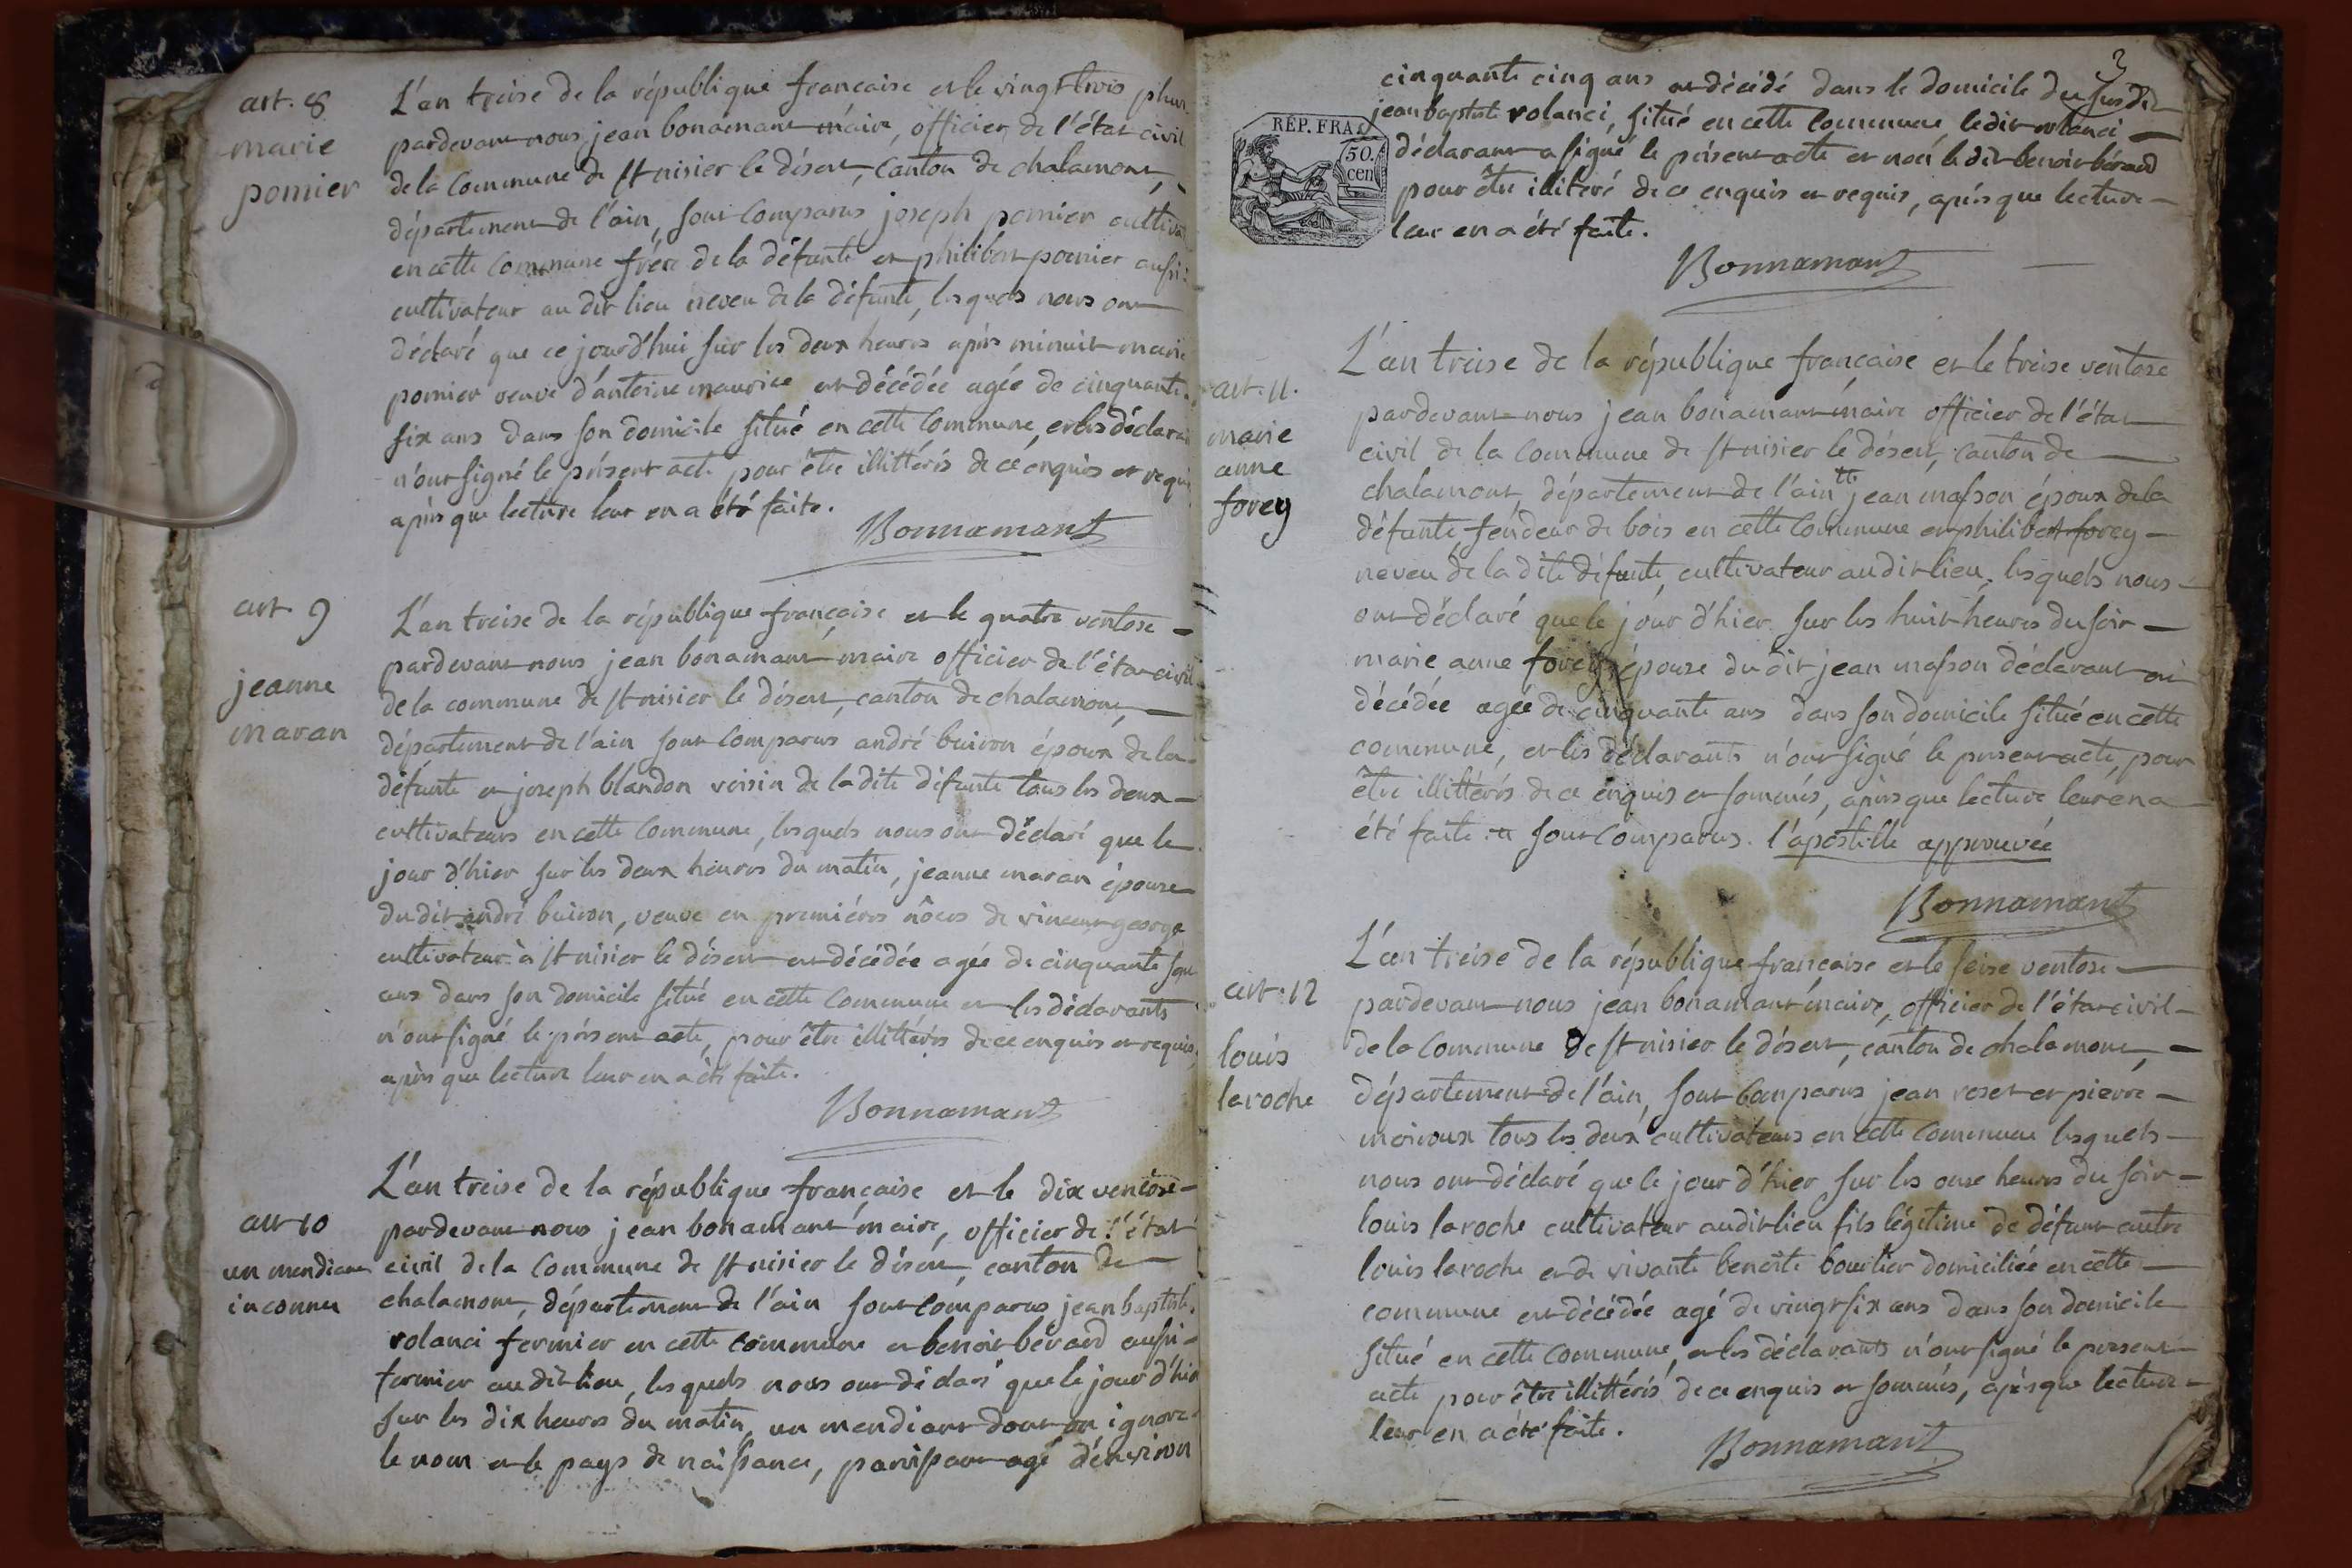 art. 8
marie
pomier
L'an treise de la république francaise et le vingt trois pluv
pardevant nous jean bonamant maire, officier de l'état civil
de la Commune de st nisier le désert, canton de chalamont,
département de l'ain, sont Comparus joseph pomier cultivat
en cette Commune frére de la défunte et philibert pomier aussi
cultivateur au dit lieu neveu de la défunte, lesquels nous ont
déclaré que ce jourd'hui sur les deux heures aprés minuit marie
pomier veuve d'antoine maurice est décédée agée de cinquante
six ans dans son domicile situé en cette Commune, et les déclara
n'ont signé le présent acte pour être illittérés de ce enquis et requi
aprés que lecture leur en a été faite.
Bonnamant
art 9
jeanne
maran
L'an treise de la république française et le quatre ventose
pardevant nous jean bonamant maire officier de l'état civil
de la commune de st nisier le désert, canton de chalamont,
département de l'ain sont Comparus andré buiron époux de la
défunte et joseph blandon voisin de la dite défunte tous les deux
cultivateurs en cette Commune, lesquels nous ont déclaré que le
jour d'hier sur les deux heures du matin, jeanne maran épouse
du dit andré buiron, veuve en premiéres nôces de vincent george
cultivateur à st nisier le désert est décédée agée de cinquante sept
ans dans son domicile situé en cette Commune et les déclarants
n'ont signé le présent acte, pour être illittérés de ce enquis et requis,
aprés que lecture leur en a été faite.
Bonnamant
art 10
un mendiant
inconnu
L'an treise de la république francaise et le dix ventose
pardevant nous jean bonamant maire, officier de l'état
civil de la Commune de st nisier le désert, canton de
chalamont, département de l'ain sont Comparus jean baptiste
rolanci fermier en cette commune et benoit bérard aussi
fermier au dit lieu, lesquels nous ont déclaré que le jour d'hier
sur les dix heures du matin, un mendiant dont on ignore
le nom et le pays de naissance, paroissant agé d'environ
3
RÉP. FRA.
50.
cen
cinquante cinq ans est décédé dans le domicile du susdit
jean baptiste rolanci, situé en cette Commune, le dit rolanci
déclarant a signé le présent acte et non le dit benoit bérard
pour être illitéré de ce enquis et requis, aprés que lecture
leur en a été faite.
Bonnamant
art. 11.
marie
anne
forey
L'an treise de la république française et le treise ventose
pardevant nous jean bonamant maire officier de l'état
civil de la Commune de st nisier le désert, canton de
chalamont, département de l'ain tt jean masson époux de la
défunte fendeur de bois en cette Commune et philibert forey
neveu de la dite défunte, cultivateur au dit lieu, lesquels nous
ont déclaré que le jour d'hier sur les huit heures du soir
marie anne forey épouse du dit jean masson déclarant est
décédée agée de cinquante ans dans son domicile situé en cette
commune, et les déclarants n'ont signé le présent acte, pour
être illittérés de ce enquis et sommés, aprés que lecture leur en a
été faite. tt sont Comparus. l'apostille approuvée
Bonnamant
art. 12
louis
laroche
L'an treise de la république francaise et le seise ventose
pardevant nous jean bonamant maire, officier de l'état civil
de la Commune de st nisier le désert, canton de chalamont,
département de l'ain, sont Comparus jean roset et pierre
moiroux tous les deux cultivateurs en cette Commune lesquels
nous ont déclaré que le jour d'hier sur les onse heures du soir
louis laroche cultivateur au dit lieu fils légitime de défunt autre
louis laroche et de vivante benoite bouvier domiciliée en cette
commune est décédée agé de vingt six ans dans son domicile
situé en cette Commune, et les déclarants n'ont signé le présent
acte pour être illittérés de ce enquis et sommés, aprés que lecture
leur en a été faite.
Bonnamant